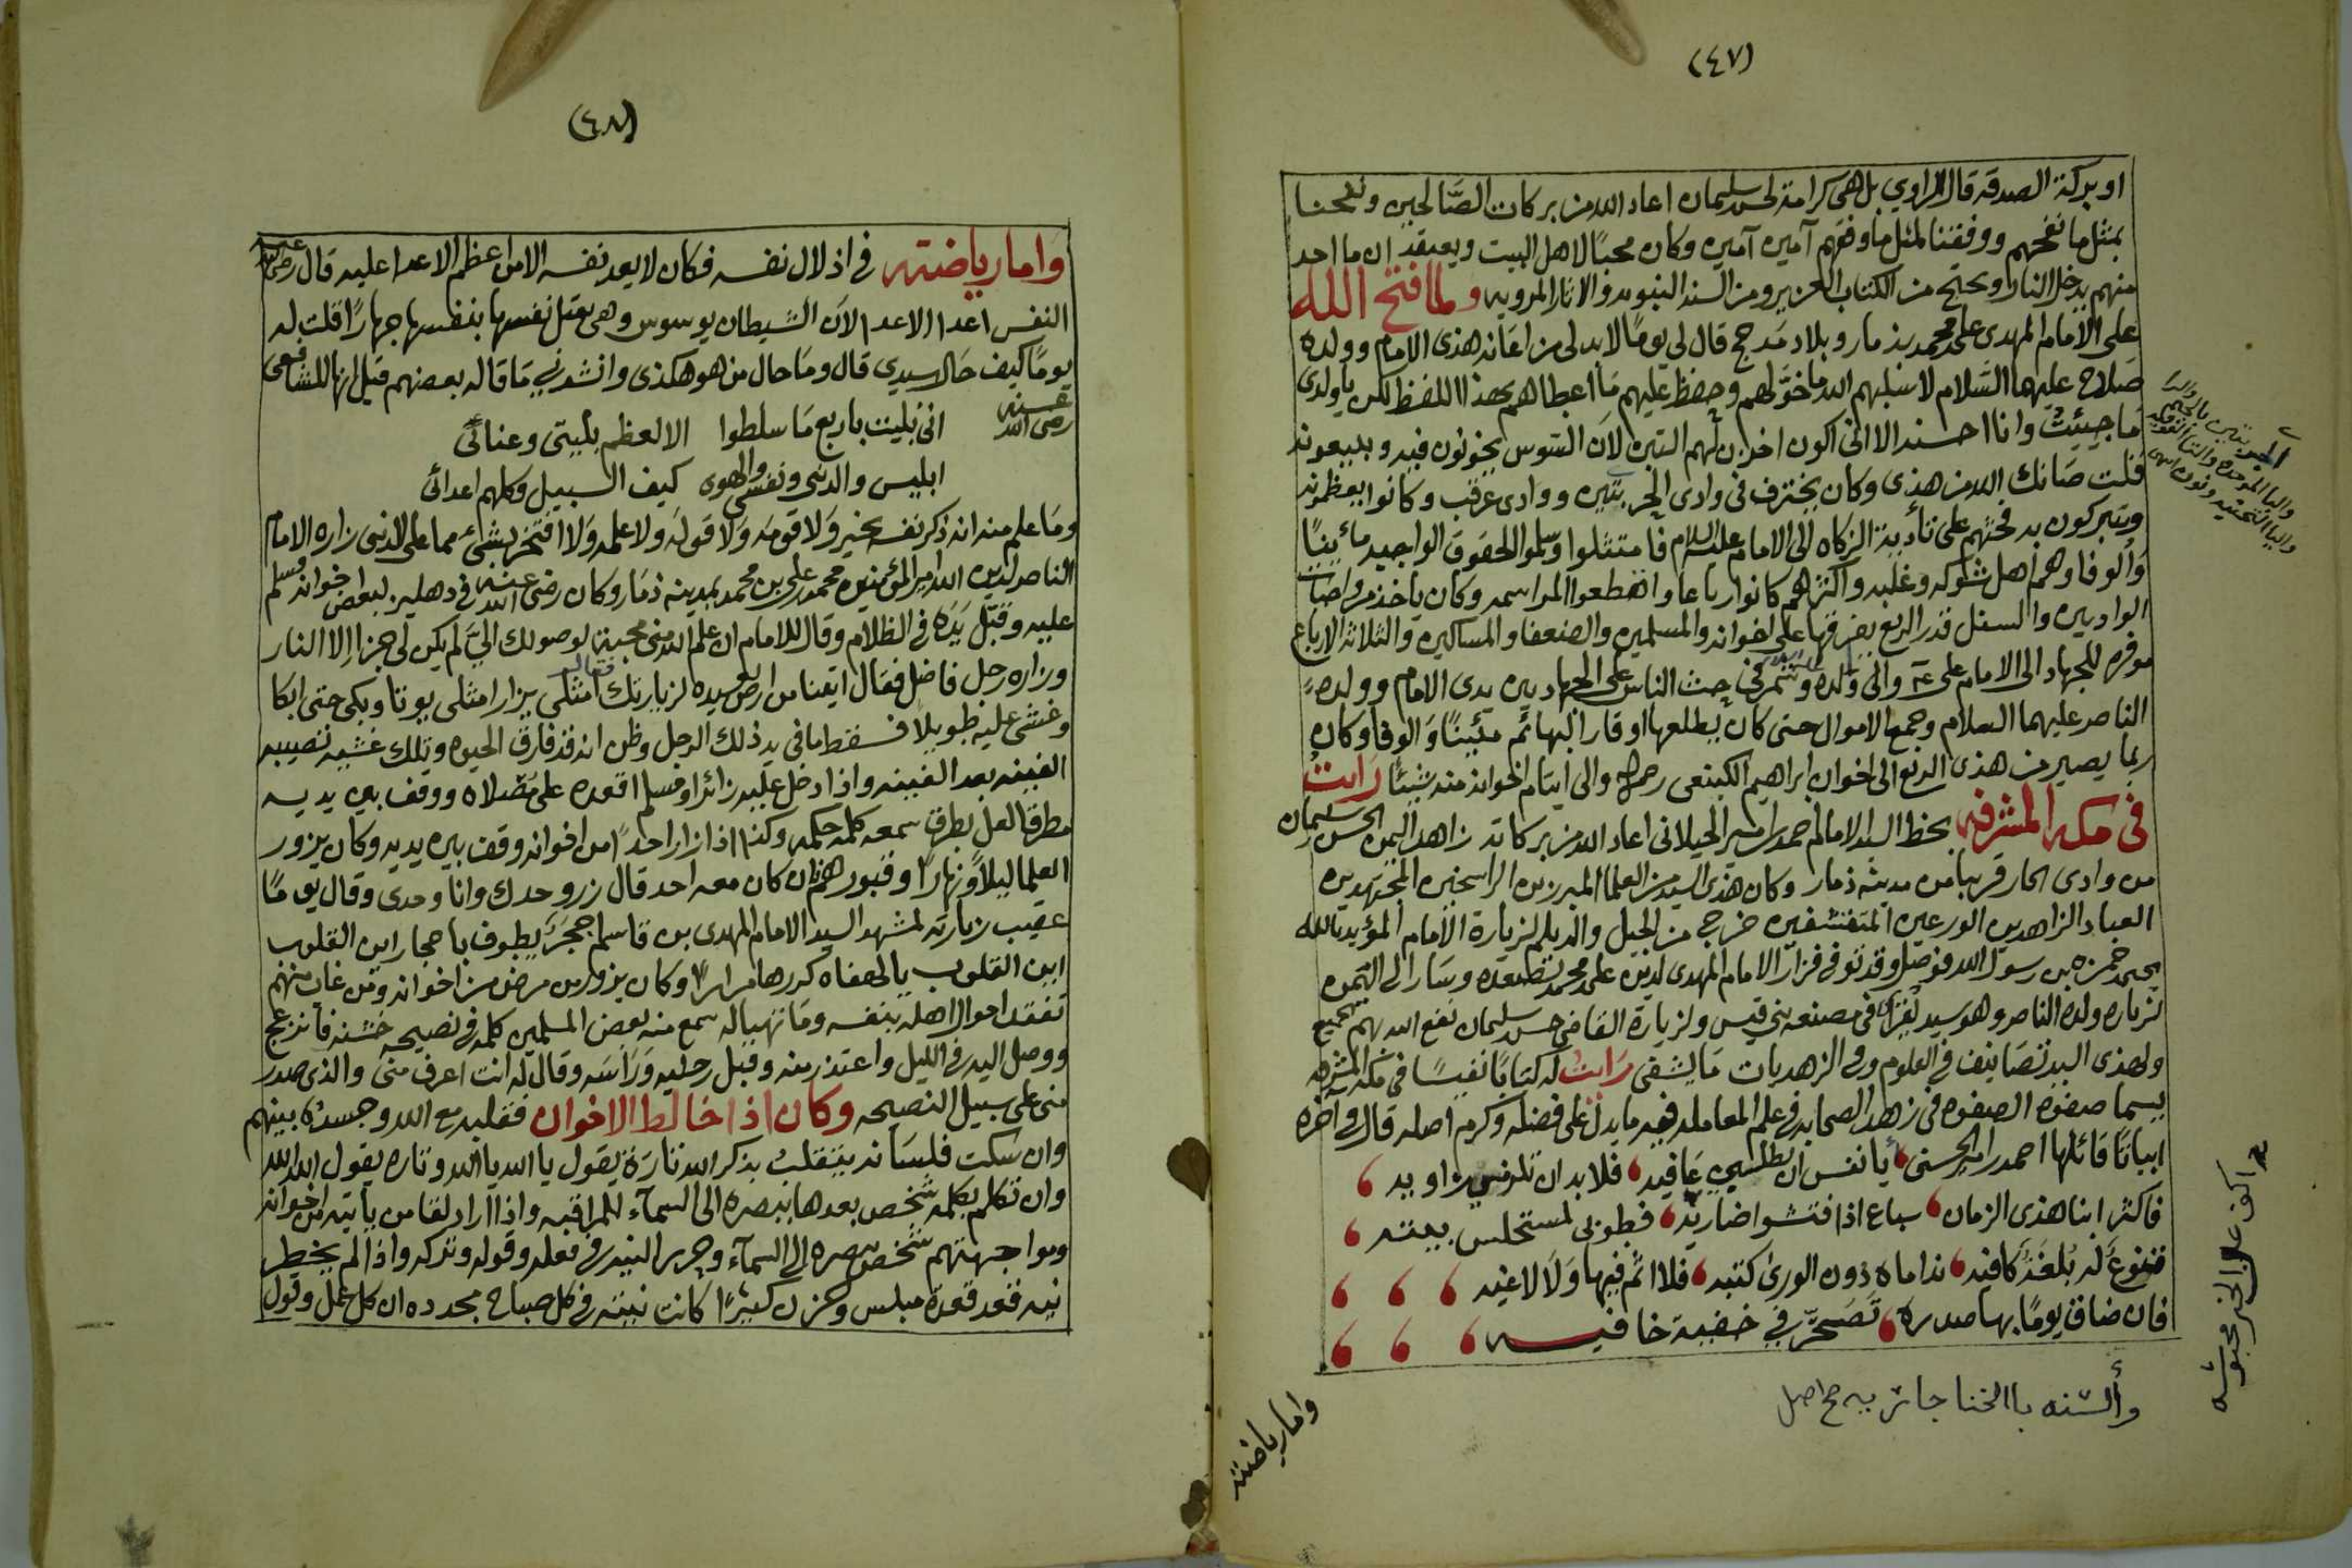 (٤٧)
او بركة الصدقه قال الراوي بل هى كرامة لحسن سليمان اعاد الله من بركات الصَّالحين ونفحنا
بمثل ما نفحهم ووفقنا لمثل ما وفقهم آمين آمين وكان محبًا لاهل البيت ويعتقد ان ما احد
منهم يدخل النار ويحتج من الكتاب العزيز ومن السند النبويه والاثار المرويه ولما فتح الله
على الامام المهدى على محمد بذمار وبلاد مذحج قال لي يومًا لابد لى من اعانه هذى الامام وولده
صَلاح عليهما السَّلام لا سَلبهم الله ما خوَّلهم وحفظ عليهم مَا اعطاهم بهذا اللفظ لكن يا ولدى
مَا جيئتُ وانا احسند الا انى اكون اخزن لهم التبن لان السَّوس يخونون فيه ويبيعونه
فلت صَانك الله من هذى وكان يخترف فى وادى الجربتين ووادى عرقب وكانوا يعظمونه
ويتبركون به فحثهم على تأدية الزكاه الى الامام عليه السلام فامتثلوا وسلموا الحقوق الواجبه مأيينًا
وَالوفا وهم اهل شوكه وغلبه واكثرهم كانوا رباعا وانقطعوا المراسمه وكان يأخذ من واصات
الواديين والسفل قدر الربع يفرقها على اخوانه والمسلمين والضعفا والمساكين والثلاثه الارباع
موفره للجهاد الى الامام على ع والى ولده وشمر فى حث الناس على الجهاد بين يدى الامام وولده
الناصر عليهما السلام وجمع الاموال حتى كان يطلعها اوقار البهائم مئينًا وَالوفا وكان
ربما يصير من هذى الربع الى اخوان ابراهيم الكينعى رحمه الله والى ايتام اخوانه منه شيئًا رايت
فى مكه المشرفه بخط السيد الامام احمد امير الجيلانى اعاد الله من بركاته زاهد اليمن الحسن سليمان
من وادى الحار قريبا من مدينه ذمار وكان هذى السيد من العلما المبرزين الراسخين المجتهدين
العباد الزاهدين الورعين المتقشفين خرج من الجيل والديلم لزيارة الامام المؤيد بالله
يحيى حمزه بن رسول الله فوصل وقد توفى فزار الامام المهدى لدين على محمد بصعده وسَار الى اليمن
لزياره ولده الناصر وهو سيد يقرا فى مصنعه بنى قيس ولزيارة القاضى حسن سليمان نفع الله بهم الجميع
ولهذى السيد تصَانيف فى العلوم وفى الزهديات مَا يشفى رَايت له كتابًا نفيسًا فى مكه المشرفه
يسما صفوة الصفوه فى زهد الصحابه فى علم المعامله فيه ما يدلّ على فضله وكرم اصله قال فى اخره
ابياتًا قائلها احمد امير الحسنى، أيا نفس ان تطلبي عَافيه، فلا بد ان تلزمي زاويه ،
فاكثر ابنا هذى الزمان، سباع اذا فتشوا ضاريَه، فطوبى لمستحلس بيته ،
قنوعٌ له بُلغَةٌ كافيه، نداماه دون الورىٰ كتبه، فلا اثمٌ فيها وَلا لاغيه ، ، ،
فان ضاق يومًا بها صدره، تَصَحّر في خفية خافيـه ، ، ،
وألسنه بالخنا جاريه صح اصل
واما رياضته
الجربتين
والبا الموحده والتا الفوقيه
واليا التحتيه ونون
اكف عن الخير محبوسه
(٤٨)
وَاما رياضته فى اذلال نفسه فكان لا يعد نفسه الا من اعظم الاعدا عليه قال رضى الله عنه
النفس اعدا الاعدا لانَ الشيطان يوسوس وهى تقتل نفسها بنفسها جهارًا قلت له
يومًا كيف حَال سيدي قال ومَا حال من هو هكذى وانشدني مَا قاله بعضهم قيل انها للشافعى
رضى الله عنه
انى بُليت باربع مَا سلطوا    الا لعظم بليتى وعنائى
ابليس والدنى ونفسى والهوى    كيف السبيل وكلهم اعدائى
ومَا علم منه انه ذكر نفسه بخير وَلا قومَه وَلا قولَه ولا علمه وَلا افتخر بشىء مما على الدنى زاره الامام
الناصر لدين الله امير المؤمنين محمد على بن محمد بمدينه ذمَار وكان رضى الله عنه فى دهليز لبعض اخوانه فسلم
عليه وقبّل يَدَه فى الظلام وقال للامام ان علم الله منى محبة لوصولك الىَّ لم يكن لى جزا الا النار
وزاره رجل فاضل فقال اتينا من ارض بعيده لزيارتك فقال له امثلى يزار امثلى يوتا وبكى حتى ابكا
وغشى عليه طويلا فسقط ما فى يد ذلك الرجل وظن انه قد فارق الحيوه وتلك غشيه تصيبه
الفينه بعد الفينه واذا دخل عليه زائرا ومسلم اقعده على مُصَلاه ووقف بين يديه
مطرقا لعل يطرق سمعه كلمه حكمه وكذا اذا زار احدًا من اخوانه وقف بين يديه وكان يزور
العلما ليلاً ونهارًا وقبورهم فان كان معه احد قال زر وحدك وانا وحدى وقال يومًا
عقيب زيارته لمشهد السيد الامام المهدى بن قاسم حجرٌ يطوف باحجار اين القلوب
اين القلوب يا لهفاه كررها مرارًا وكان يزور من مرض من اخوانه ومن غاب منهم
تفقد احوال اهله بنفسه ومَا تهيا له سمع منه بعض المسلمين كلمه فى نصيحه خشنه فانزعج
ووصل اليه فى الليل واعتذر منه وقبل رجليه وَرَاسَه وقال له انت اعرف منى والذى صدر
منى على سبيل النصيحه وكان اذا خالط الاخوان فقلبه مع الله وجسده بينهم
وان سكت فلسَانه يتقلب بذكر الله تارَة يقول يا الله يا الله وتاره يقول الله الله
وان تكلم بكلمه شخص بعدها ببصره الى السمآء للمراقبه واذا اراد لقا من يأتيه من اخوانه
ومواجهتهم شخص ببصره الى السمآء وحرر النيه فى فعله وقوله وتركه واذا لم يخطر
نيه فقد قعده مبلس وحزن كثيرًا كانت نيته فى كل صباح مجدده ان كل عمل وقول